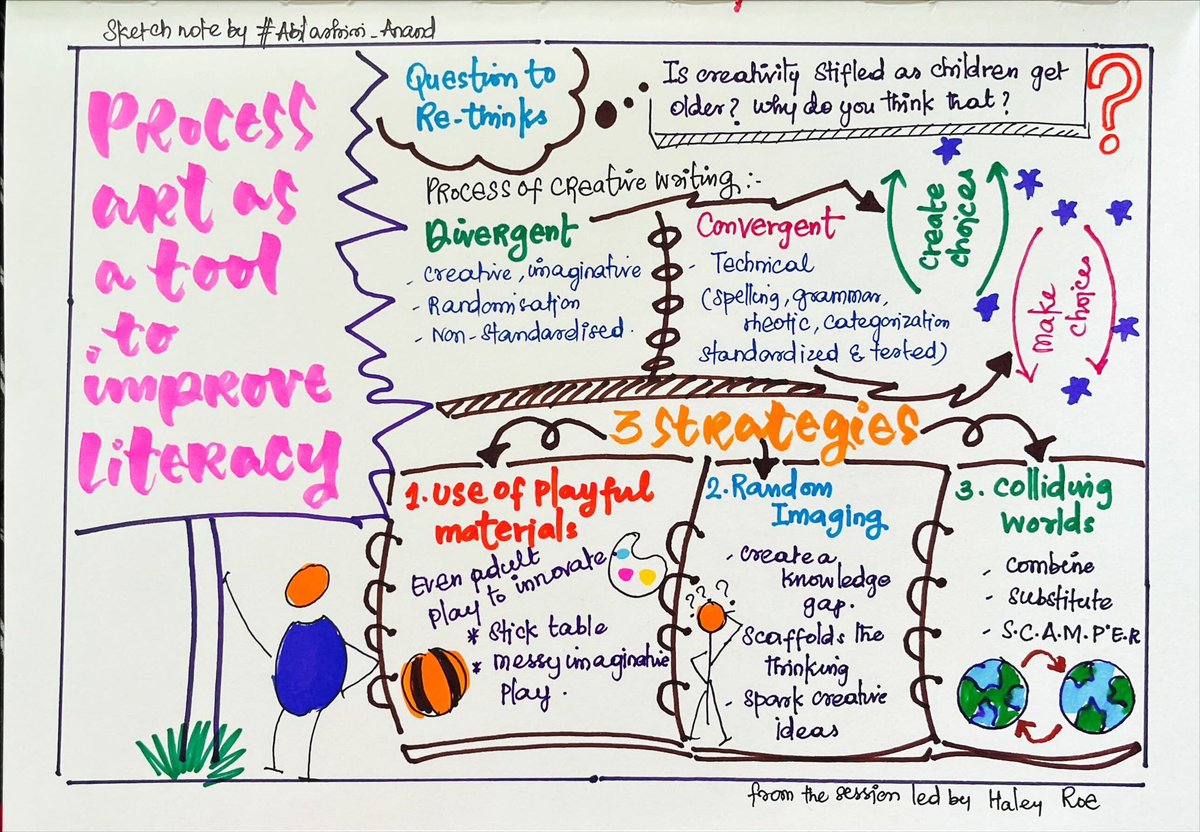 Sketch note by #Abilashini_Anand
Process
art as
a tool
to
improve
Literacy
Question to
Re-thinks
Is creativity stifled as children get
older? Why do you think that?
?
Process of creative writing:-
Divergent
- creative, imaginative
- Randomisation
- Non-Standardised.
Convergent
- Technical
(spelling, grammar,
rheotic, categorization
standardized & tested)
create
choices
make
choices
3 strategies
1. Use of playful
materials
Even adult
play to innovate
* stick table
* messy imaginative
play.
2. Random
Imaging
- create a
knowledge
gap.
Scaffolds the
thinking
- Spark creative
ideas
? ? ?
3. colliding
worlds
- combine
- substitute
- S.C.A.M.P.E.R
from the session led by Haley Roe